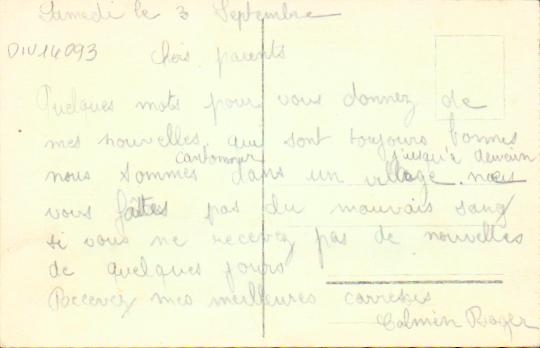 Samedi le 3 Septembre
DIV14093
chers parents
Quelques mots pour vous donnez de
mes nouvelles que sont toujours bonnes
cantonner jusqu'à demain
nous sommes dans un village. ne
vous faîtes pas du mauvais sang
si vous ne recevez pas de nouvelles
de quelques jours
Recevez mes meilleures carresses
Calmen Roger